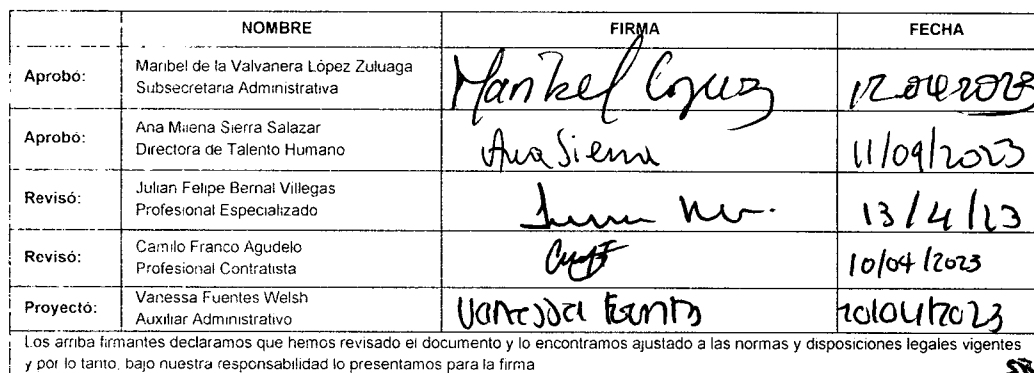 NOMBRE FIRMA FECHA
Aprobó: Maribel de la Valvanera López Zuluaga
Subsecretaria Administrativa
Maribel 12.04.2023
Aprobó: Ana Milena Sierra Salazar
Directora de Talento Humano
Ana Sierra 11/04/2023
Revisó: Julian Felipe Bernal Villegas
Profesional Especializado
13/4/23
Revisó: Camilo Franco Agudelo
Profesional Contratista
10/04/2023
Proyectó: Vanessa Fuentes Welsh
Auxiliar Administrativo
Vanessa Fuentes 10/04/2023
Los arriba firmantes declaramos que hemos revisado el documento y lo encontramos ajustado a las normas y disposiciones legales vigentes
y por lo tanto, bajo nuestra responsabilidad lo presentamos para la firma